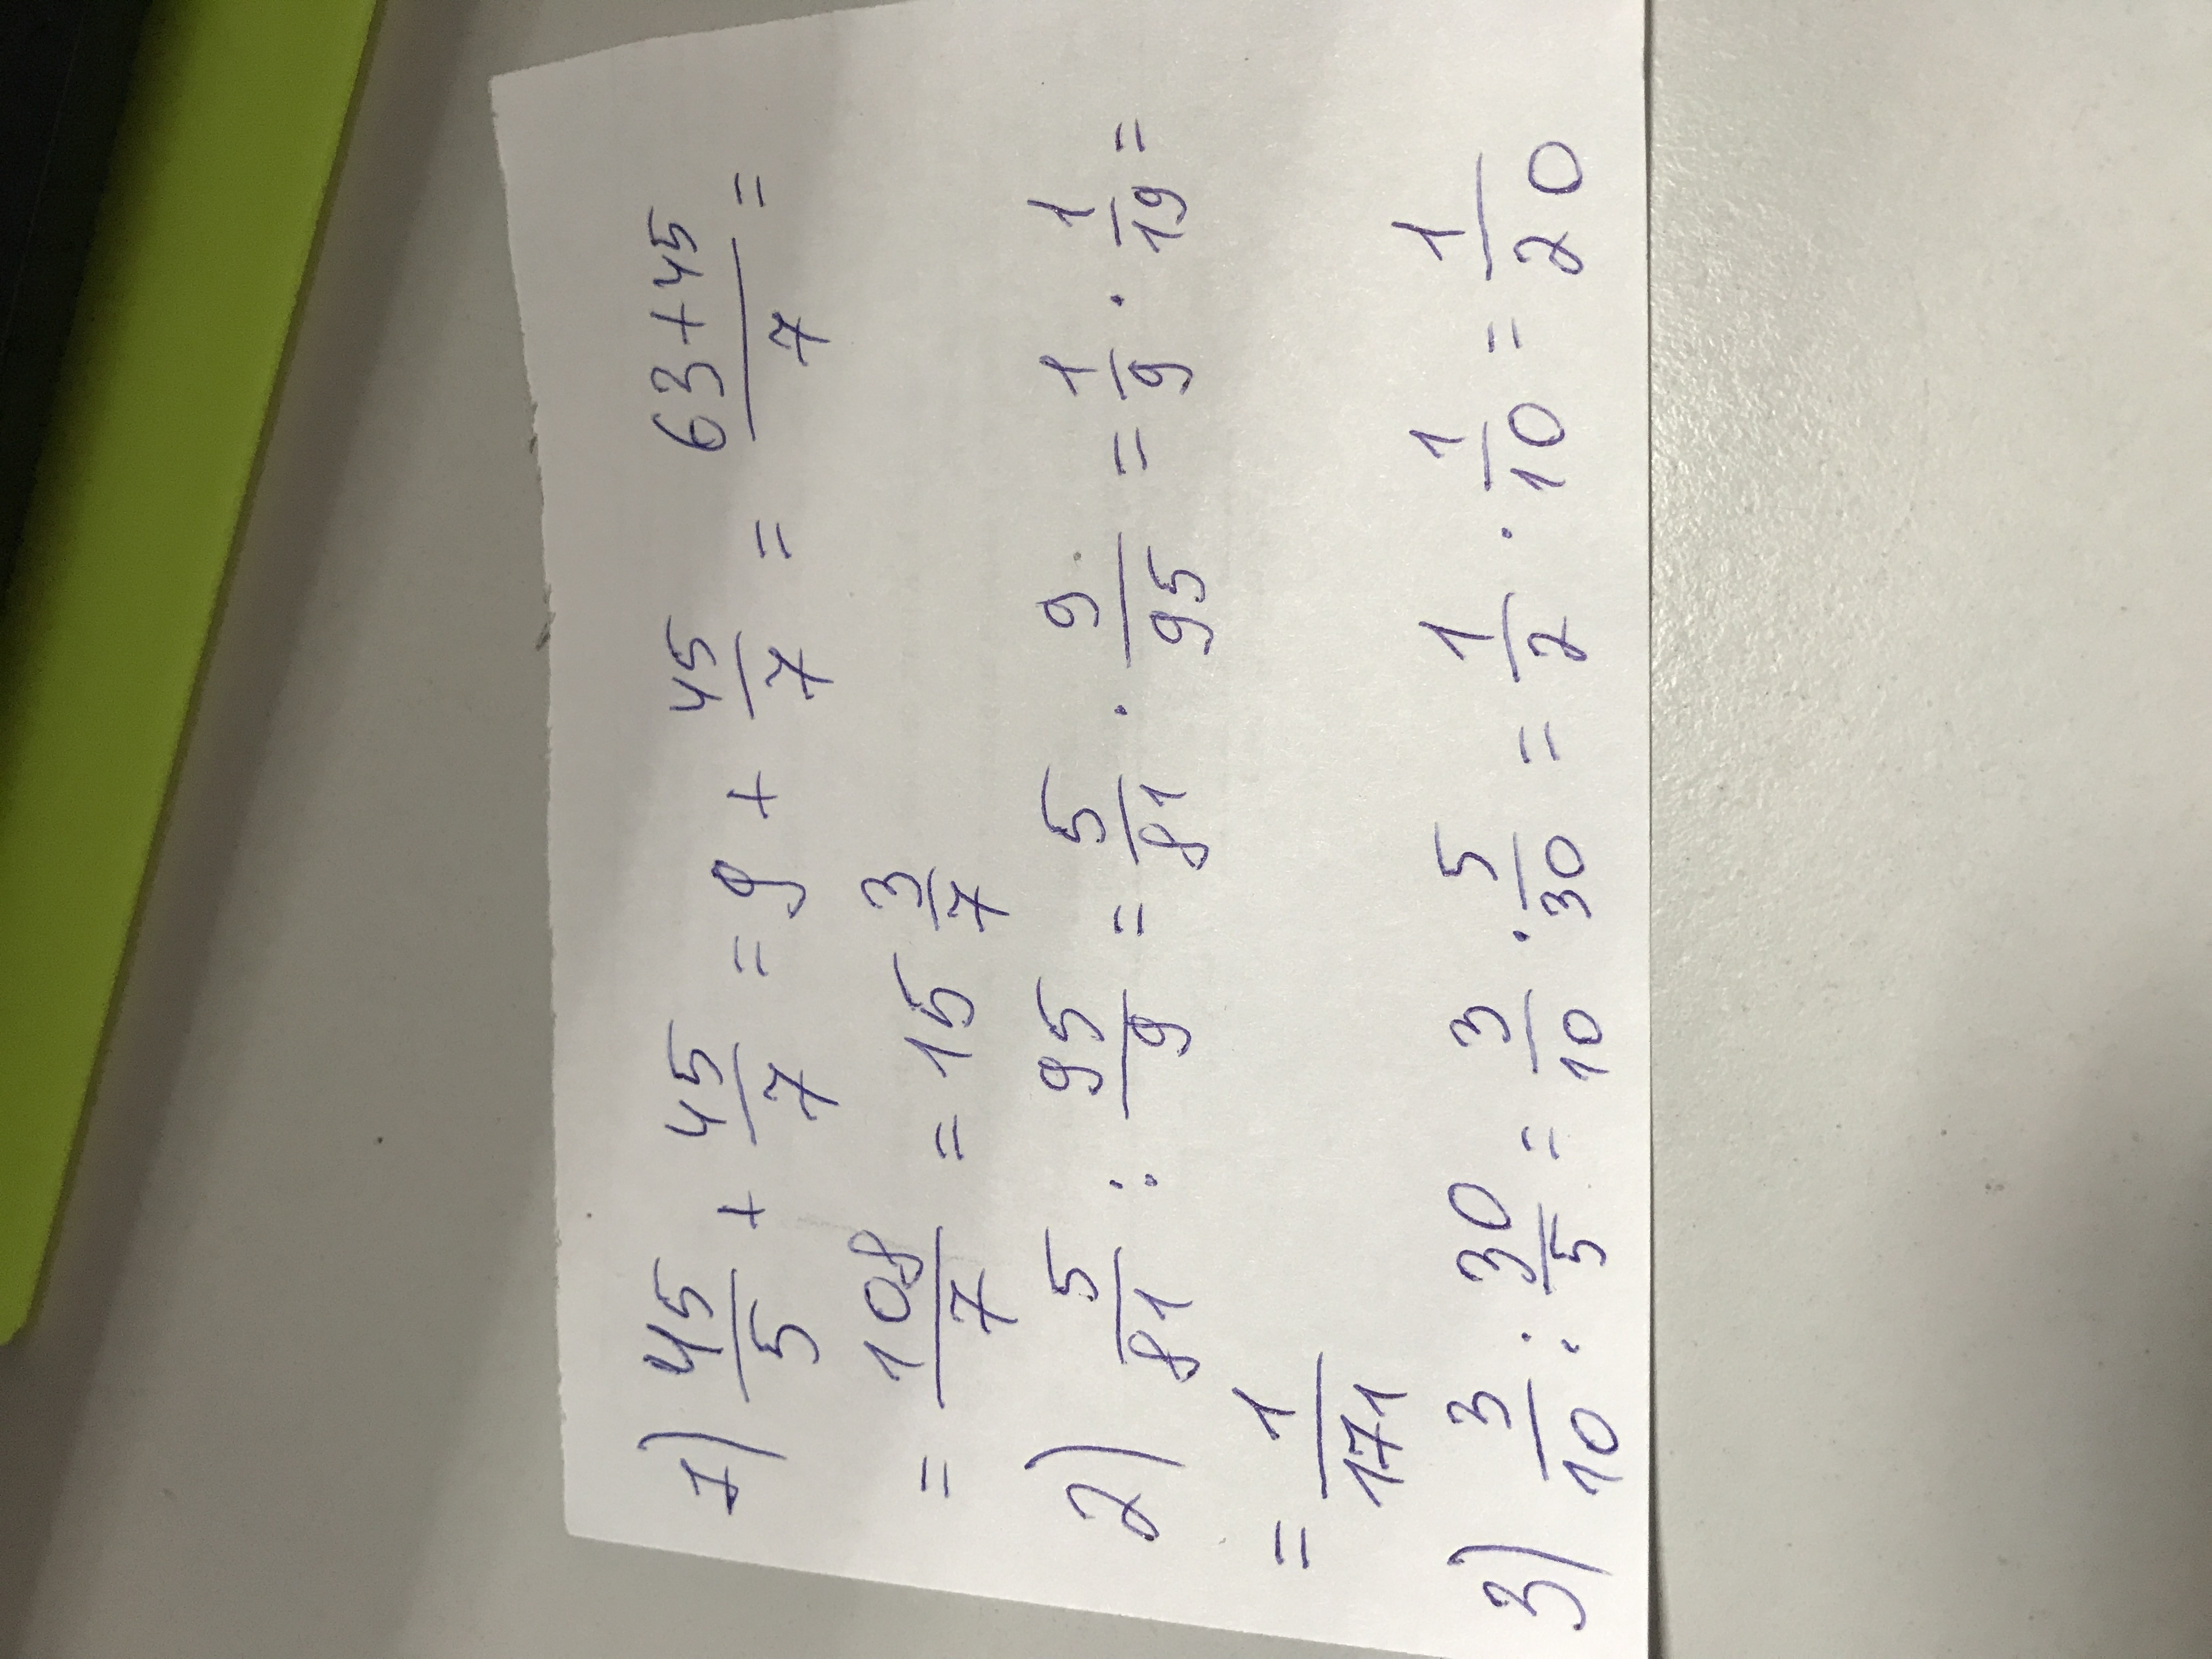 1) 45/5 + 45/7 = 9 + 45/7 = 63+45/7 =
= 108/7 = 15 3/7
2) 5/81 : 95/9 = 5/81 · 9/95 = 1/9 · 1/19 =
= 1/171
3) 3/10 : 30/5 = 3/10 · 5/30 = 1/2 · 1/10 = 1/20